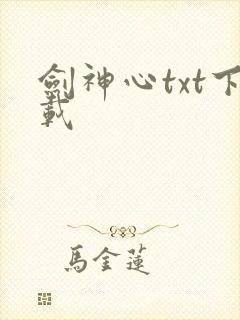 劍神心txt下
載
馬金蓮